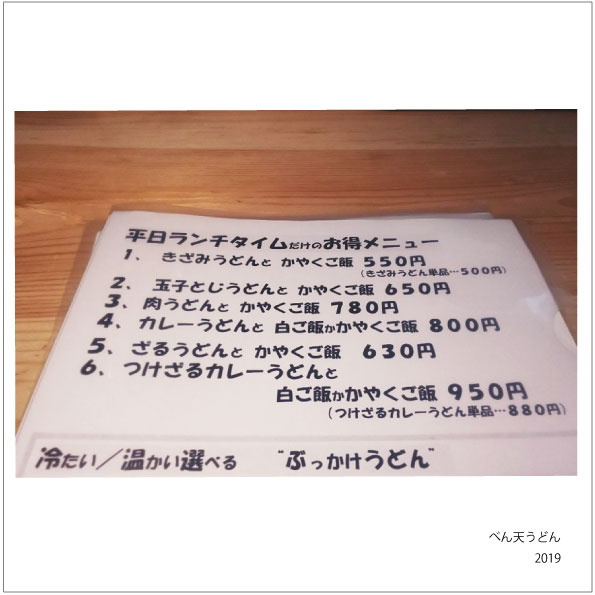 平日ランチタイムだけのお得メニュー
1、きざみうどんと かやくご飯 550円
(きざみうどん単品…500円)
2、玉子とじうどんと かやくご飯 650円
3、肉うどんと かやくご飯 780円
4、カレーうどんと 白ご飯かかやくご飯 800円
5、ざるうどんと かやくご飯 630円
6、つけざるカレーうどんと
白ご飯かかやくご飯 950円
(つけざるカレーうどん単品…880円)
冷たい／温かい選べる "ぶっかけうどん"
べん天うどん
2019